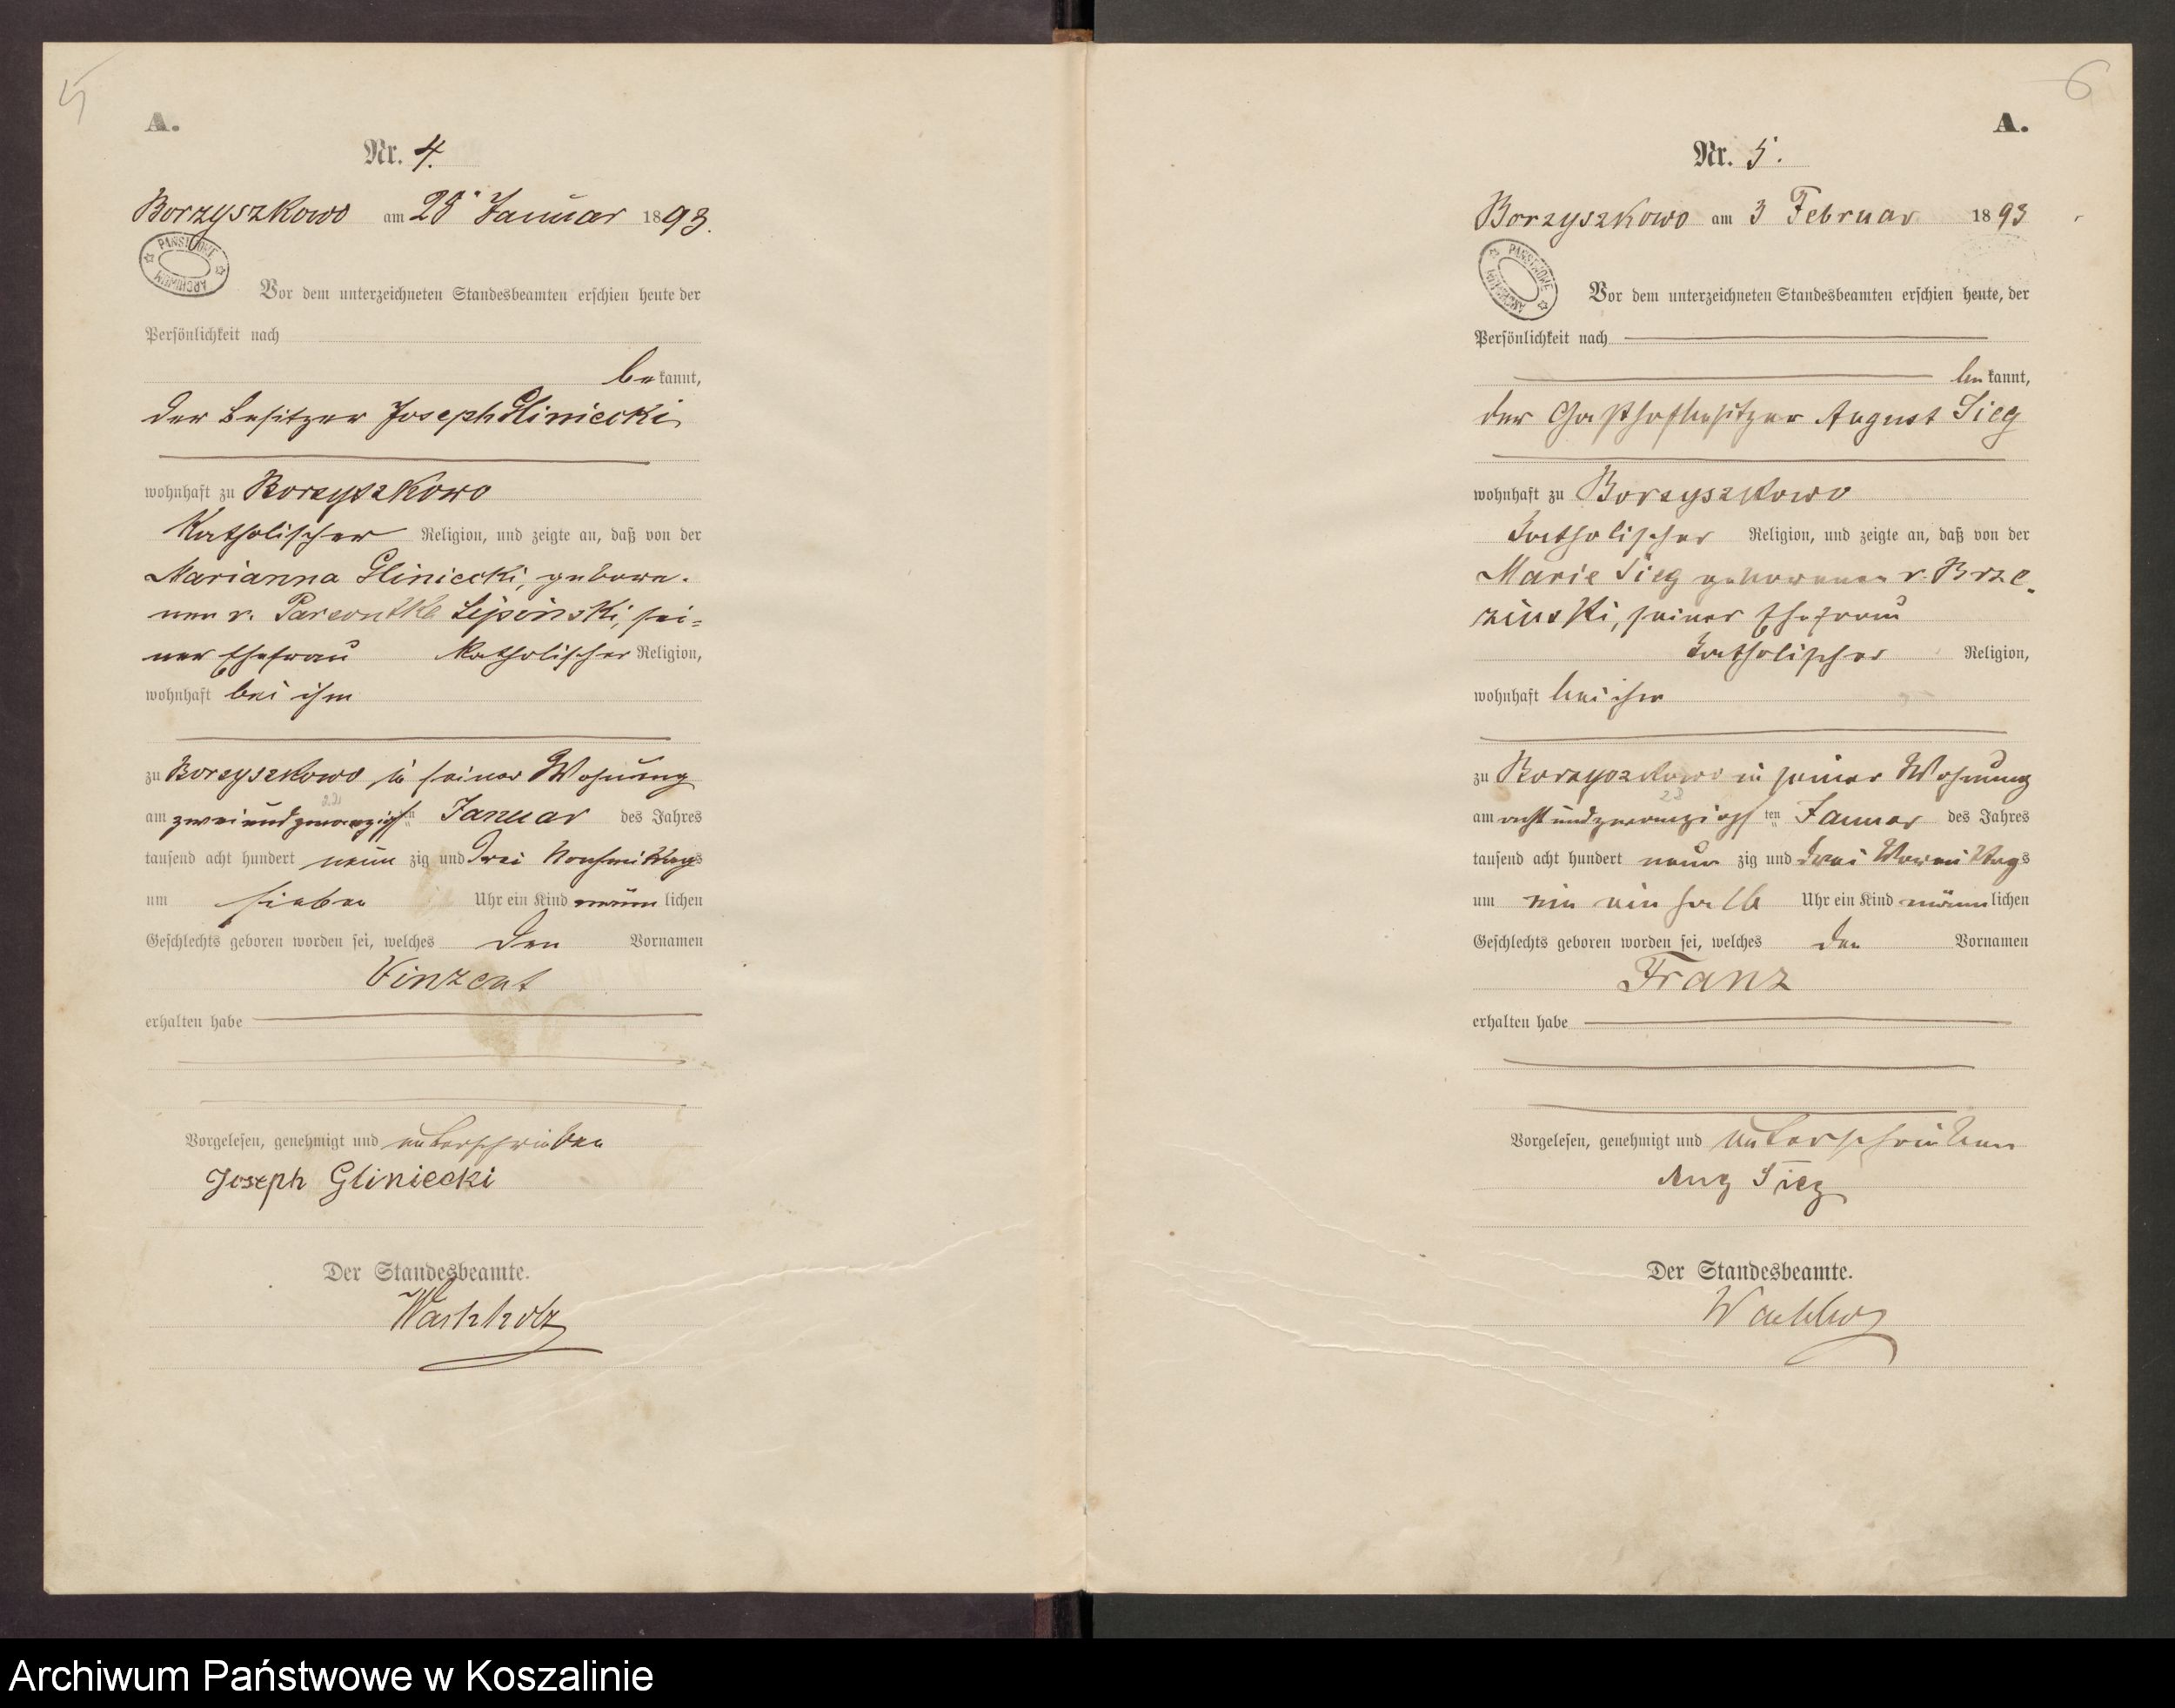 5
A.
Nr. 4.
Borzyszkowo am 28 Januar 1893.
PAŃSTWOWE ARCHIWUM
Vor dem unterzeichneten Standesbeamten erschien heute der
Persönlichkeit nach
bekannt,
der Besitzer Joseph Gliniecki
wohnhaft zu Borzyszkowo
Katholischer Religion, und zeigte an, daß von der
Marianna Gliniecki, gebore-
nen v. Lipinski, sei=
ner Ehefrau Katholischer Religion,
wohnhaft bei ihm
zu Borzyszkowo in seiner Wohnung
am zweiundzwanzigsten Januar des Jahres
tausend acht hundert neunzig und drei Nachmittags
um sieben Uhr ein Kind männlichen
Geschlechts geboren worden sei, welches den Vornamen
Vinzent
erhalten habe
Vorgelesen, genehmigt und unterschrieben
Joseph Gliniecki
Der Standesbeamte.
Washholz
6
A.
Nr. 5.
Borzyszkowo am 3 Februar 1893
PAŃSTWOWE ARCHIWUM
Vor dem unterzeichneten Standesbeamten erschien heute, der
Persönlichkeit nach
bekannt,
der Gasthofbesitzer August Sieg
wohnhaft zu Borzyszkowo
katholischer Religion, und zeigte an, daß von der
Marie Sieg geborenen v. Brze-
zinski, seiner Ehefrau
katholischer Religion,
wohnhaft bei ihm
zu Borzyszkowo in seiner Wohnung
am achtundzwanzigsten Januar des Jahres
tausend acht hundert neunzig und drei Vormittags
um ein ein halb Uhr ein Kind männlichen
Geschlechts geboren worden sei, welches den Vornamen
Franz
erhalten habe
Vorgelesen, genehmigt und unterschrieben
Aug Sieg
Der Standesbeamte.
Archiwum Państwowe w Koszalinie